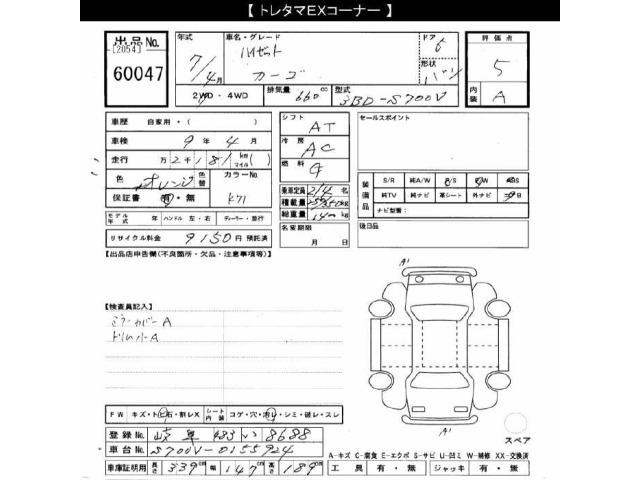 【 トレタマEXコーナー 】
出品No. [2054] 60047
年式 7/4月
車名・グレード ハイゼット カーゴ
ドア 6
形状 バン
評価点 5
内装 A
2WD・4WD
排気量 660cc
型式 3BD-S700V
車歴 自家用・( )
車検 9年4月
走行 万2千181km(マイル)( )
色 オレンジ 色替 カラーNo. K71
保証書 有・無
モデル年式 年 ハンドル 左・右 ディーラー・並行
リサイクル料金 9150円 預託済
シフト AT
冷房 AC
燃料 G
乗車定員 2/4名
積載量 350/250kg
総重量 kg
名変期限 月 日
セールスポイント
装備品 S/R 純A/W P/S P/W ABS
純TV 純ナビ 革シート 外ナビ エアB
ナビ型番:
後日品
【出品店申告欄(不良箇所・欠品・注意事項等)】
【検査員記入】
ミラーカバーA
トリムハA
A1
A1
FW キズ・トビ石・割レX シート内張 コゲ・穴・汚レ・シミ・破レ・スレ
登録No. 岐阜 483 い 8688
車台No. S700V-0155924
車庫証明用 長さ 339cm 幅 147cm 高さ 189cm
スペア
A-キズ C-腐食 E-エクボ S-サビ U-凹ミ W-補修 XX-交換済
工具 有・無 ジャッキ 有・無